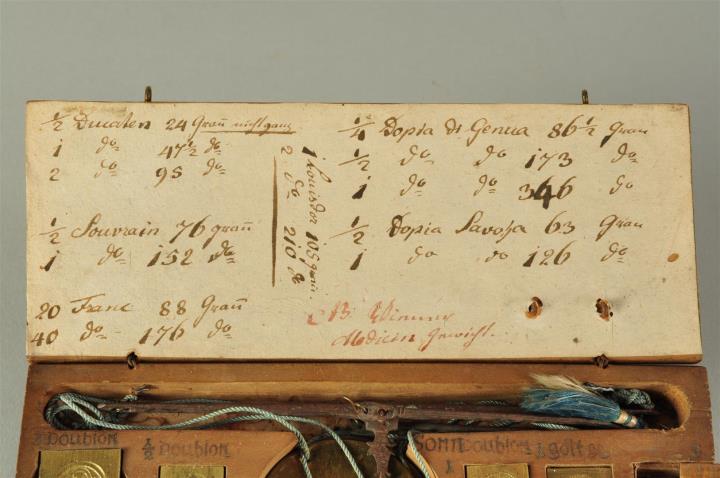 ½ Ducaten 24 Grañ nicht ganz
1 do 47½ do
2 do 95 do
½ Souvrain 76 grañ
1 do 152 do
20 Franc 88 Grañ
40 do 176 do
1 Louisdor 105 grañ.
2 do 210 do
¼ Dopia di Genua 86½ Grañ
½ do do 173 do
1 do do 346 do
½ Dopia Savoja 63 Grañ
1 do do 126 do
NB. Wienner
Medicin Gewicht.
Doublon
½ Doublon
Sonn doublon
1